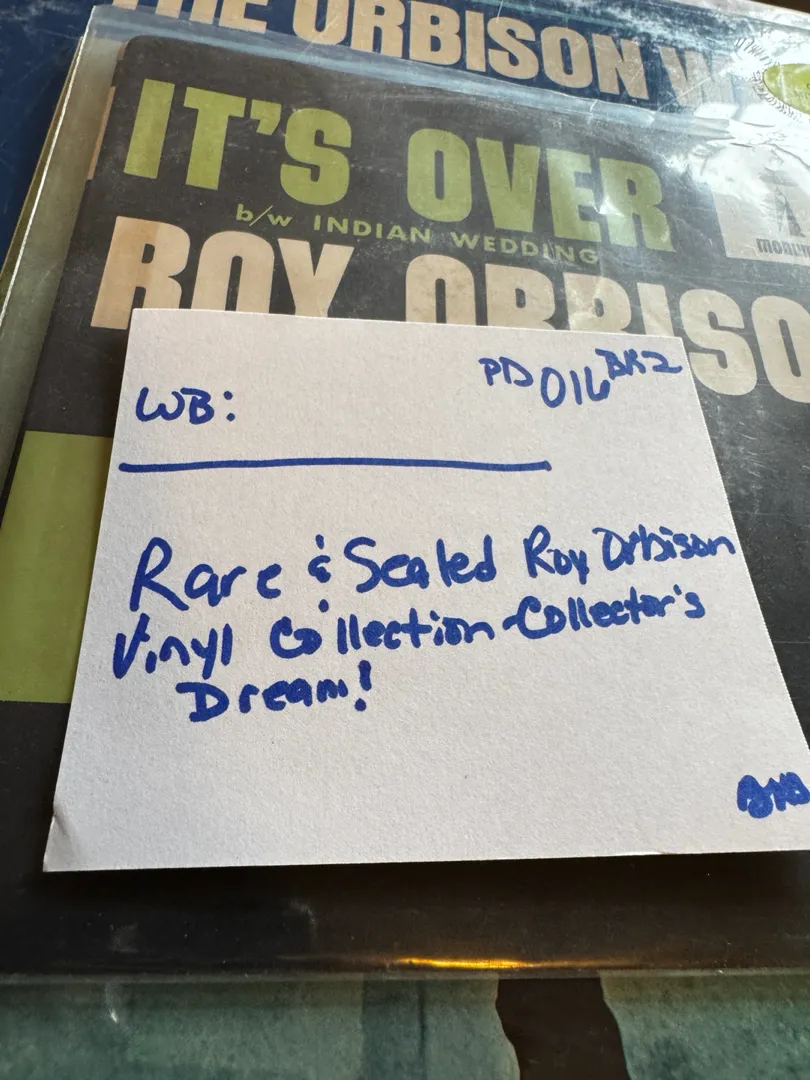 THE ORBISON W
IT'S OVER
b/w INDIAN WEDDING
ROY ORBISO
PD 016 BK2
WB:
Rare & Sealed Roy Orbison
Vinyl Collection-Collector's
Dream!